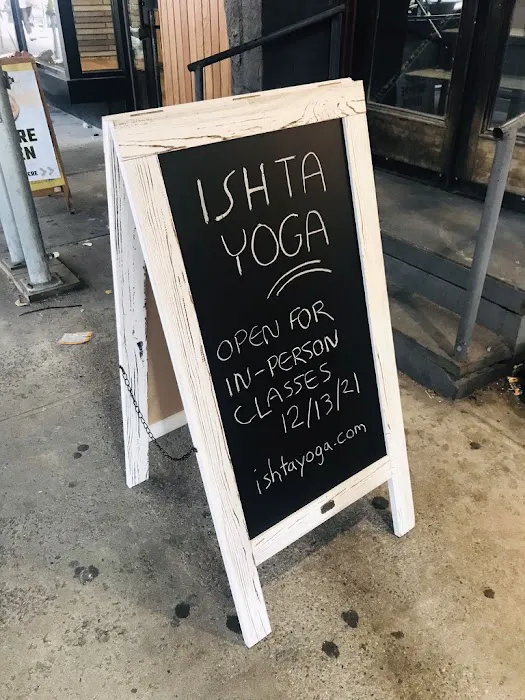 ISHTA
YOGA
OPEN FOR
IN-PERSON
CLASSES
12/13/21
ishtayoga.com
RE
EN
ERE >>